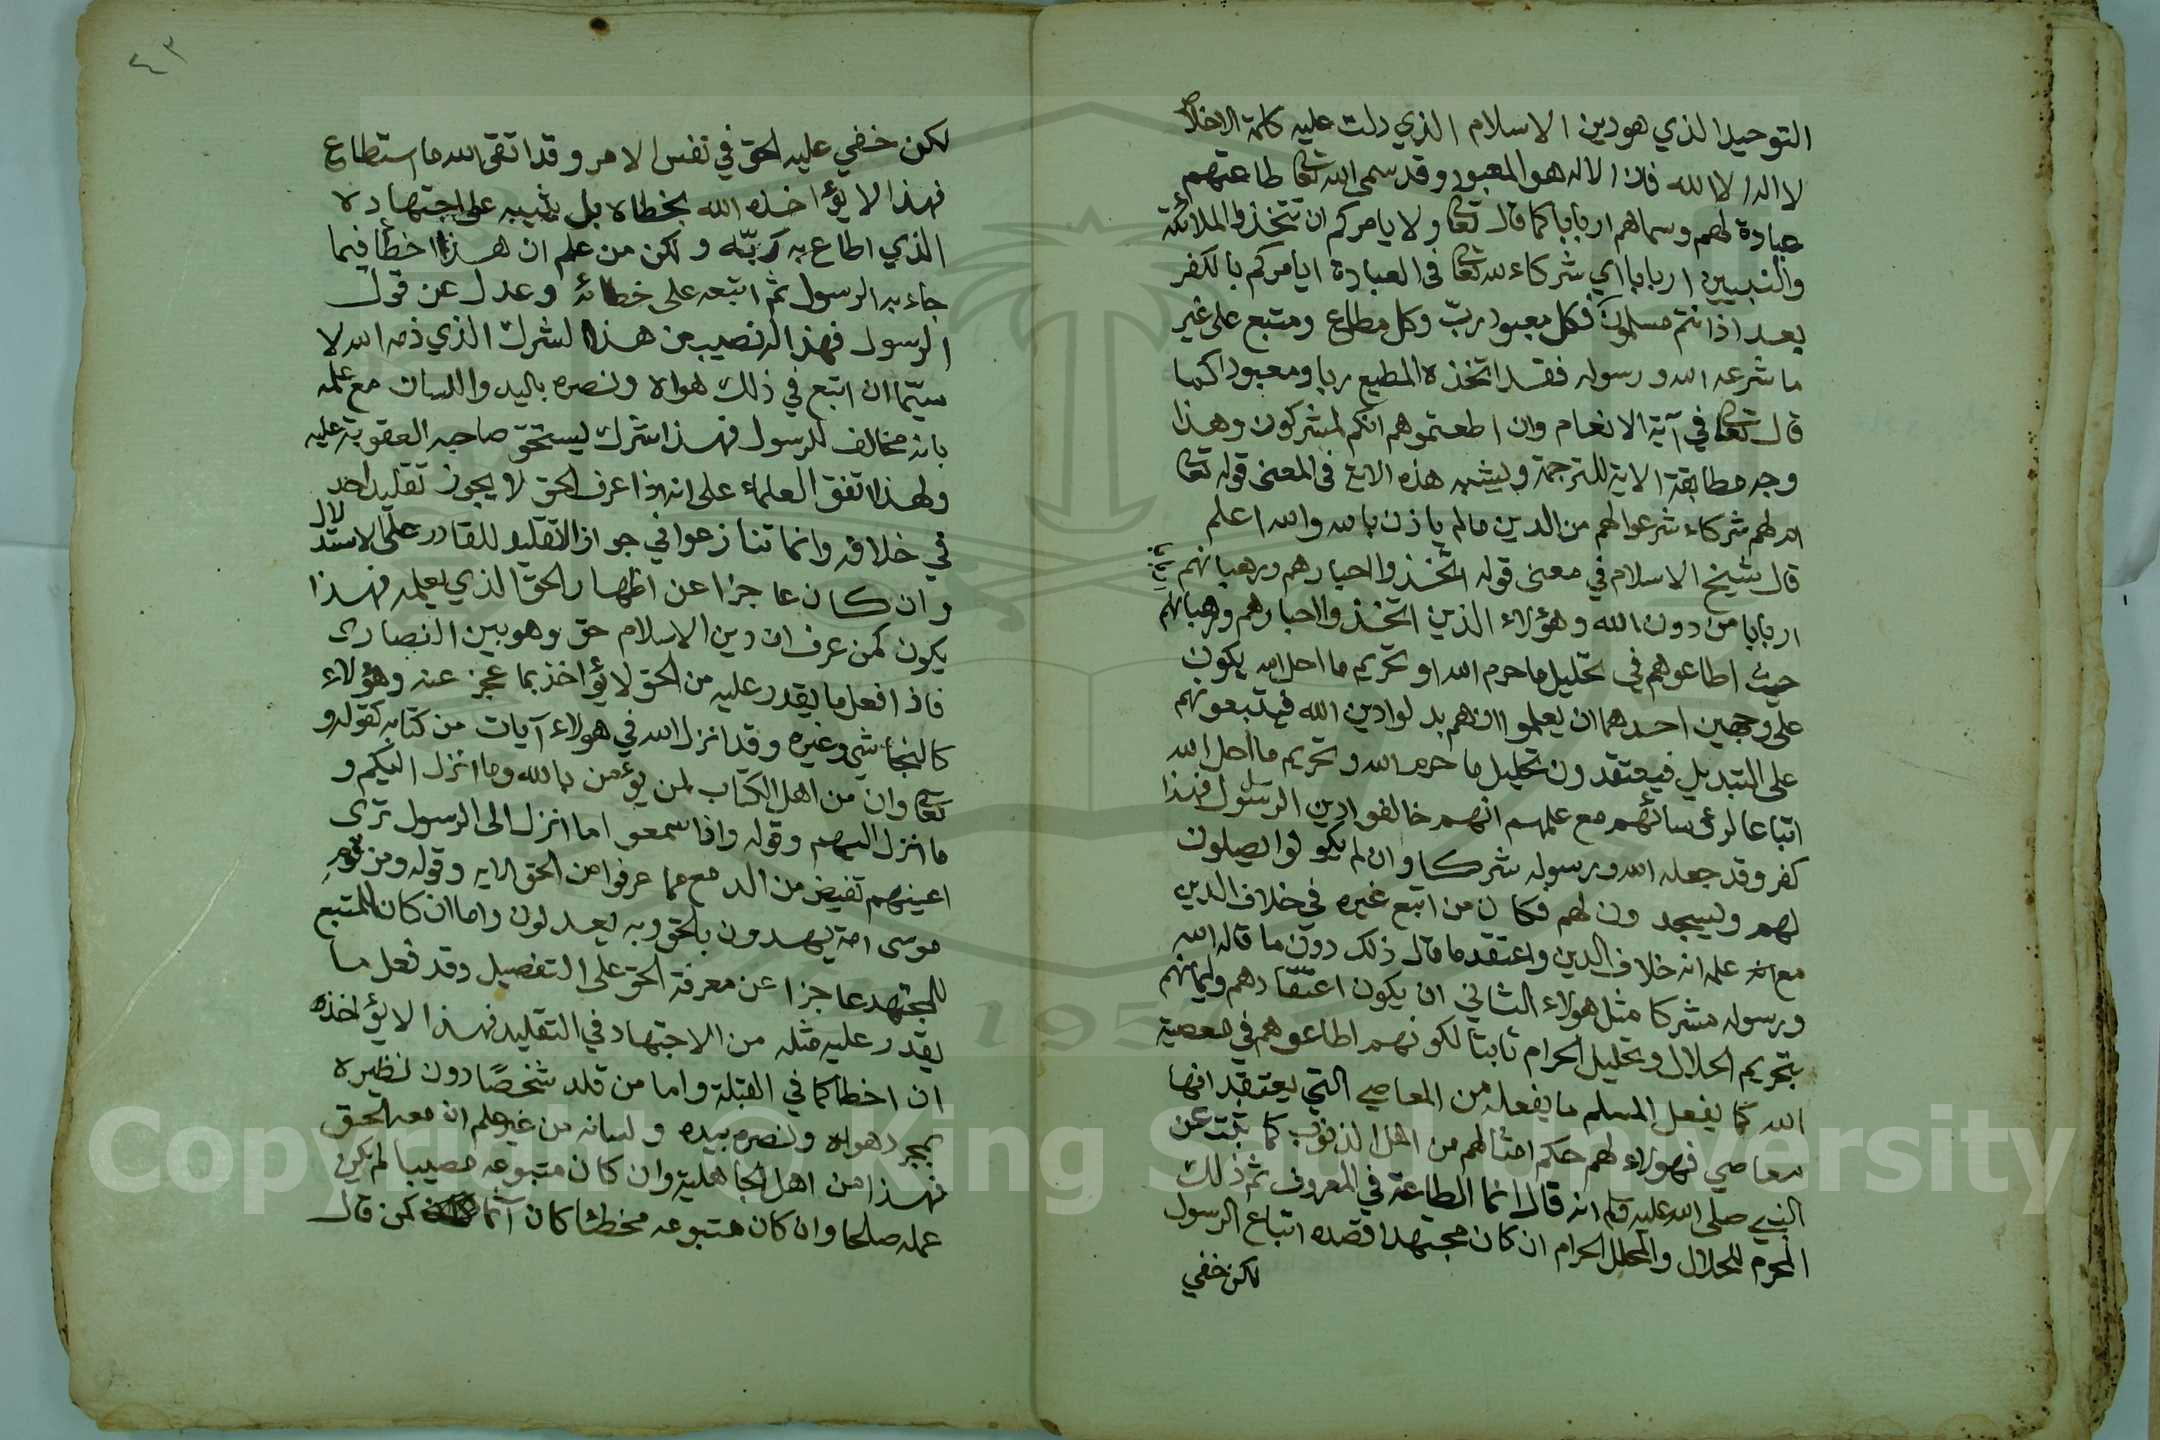 التوحيد الذي هو دين الاسلام الذي دلت عليه كلمة الاخلاص
لا اله الا الله فان الاله هو المعبود وقد سمى الله تعا طاعتهم
عبادة لهم وسماهم اربابا كما قال تعا ولا يامركم ان تتخذوا الملائكة
والنبيين اربابا اي شركاء لله تعا في العبادة ايامركم بالكفر
بعد اذ انتم مسلمون فكل معبود ربّ وكل مطاع ومتبع على غير
ما شرعه الله ورسوله فقد اتخذه المطيع ربا ومعبودا كما
قال تعا في آية الانعام وان اطعتموهم انكم لمشركون وهذا
وجه مطابقة الاية للترجمة ويشبه هذه الاية في المعنى قوله تعا
ام لهم شركاء شرعوا لهم من الدين ما لم ياذن به الله والله اعلم
قال شيخ الاسلام في معنى قوله اتخذوا احبارهم ورهبانهم
اربابا من دون الله وهؤلاء الذين اتخذوا احبارهم ورهبانهم
حيث اطاعوهم في تحليل ما حرم الله او تحريم ما احل الله يكون
على وجهين احدهما ان يعلموا انهم بدلوا دين الله فيتبعونهم
على التبديل فيعتقدون تحليل ما حرم الله وتحريم ما احل الله
اتباعا لرؤسائهم مع علمهم انهم خالفوا دين الرسول فهذا
كفر وقد جعله الله ورسوله شركا وان لم يكونوا يصلون
لهم ويسجدون لهم فكان من اتبع غيره في خلاف الدين
مع علمه انه خلاف الدين واعتقد ما قال ذلك دون ما قاله الله
ورسوله مشركا مثل هؤلاء الثاني ان يكون اعتقادهم وايمانهم
بتحريم الحلال وتحليل الحرام ثابتا لكونهم اطاعوهم في معصية
الله كما يفعل المسلم ما يفعله من المعاصي التي يعتقد انها
معاصي فهؤلاء لهم حكم امثالهم من اهل الذنوب كما ثبت عن
النبي صلى الله عليه وسلم انه قال انما الطاعة في المعروف ثم ذلك
المحرم للحلال والمحلل الحرام ان كان مجتهدا قصده اتباع الرسول
لكن خفي
٤٣
لكن خفي عليه الحق في نفس الامر وقد اتقى الله ما استطاع
فهذا لا يؤاخذه الله بخطاه بل يثيبه على اجتهاده
الذي اطاع به ربّه ولكن من علم ان هذا اخطأ فيما
جاء به الرسول ثم اتبعه على خطائه وعدل عن قول
الرسول فهذا له نصيب من هذا الشرك الذي ذمه الله لا
سيّما ان اتبع في ذلك هواه ونصره باليد واللسان مع علمه
بانه مخالف للرسول فهذا شرك يستحق صاحبه العقوبة عليه
ولهذا اتفق العلماء على انه اذا عرف الحق لا يجوز تقليد احد
في خلافه وانما تنازعوا في جواز التقليد للقادر على الاستدلال
وان كان عاجزا عن اظهار الحق الذي يعلمه فهذا
يكون كمن عرف ان دين الاسلام حق وهو بين النصارى
فاذا فعل ما يقدر عليه من الحق لا يؤاخذ بما عجز عنه وهؤلاء
كالنجاشي وغيره وقد انزل الله في هولاء آيات من كتابه كقوله و
تعا وان من اهل الكتاب لمن يؤمن بالله وما انزل اليكم و
ما انزل اليهم وقوله واذا سمعوا ما انزل الى الرسول ترى
اعينهم تفيض من الدمع مما عرفوا من الحق الايه وقوله ومن قوم
موسى امة يهدون بالحق وبه يعدلون واما ان كان المتبع
للمجتهد عاجزا عن معرفة الحق على التفصيل وقد فعل ما
يقدر عليه مثله من الاجتهاد في التقليد فهذا لا يؤاخذه
ان اخطا كما في القبلة واما من قلد شخصًا دون نظيره
بمجرد هواه ونصره بيده ولسانه من غير علم ان معه الحق
فهذا من اهل الجاهلية وان كان متبوعه مصيبا لم يكن
عمله صلحا وان كان متبوعه مخطئا كان آثما كمن قال
Copyright © King Saud University
1957